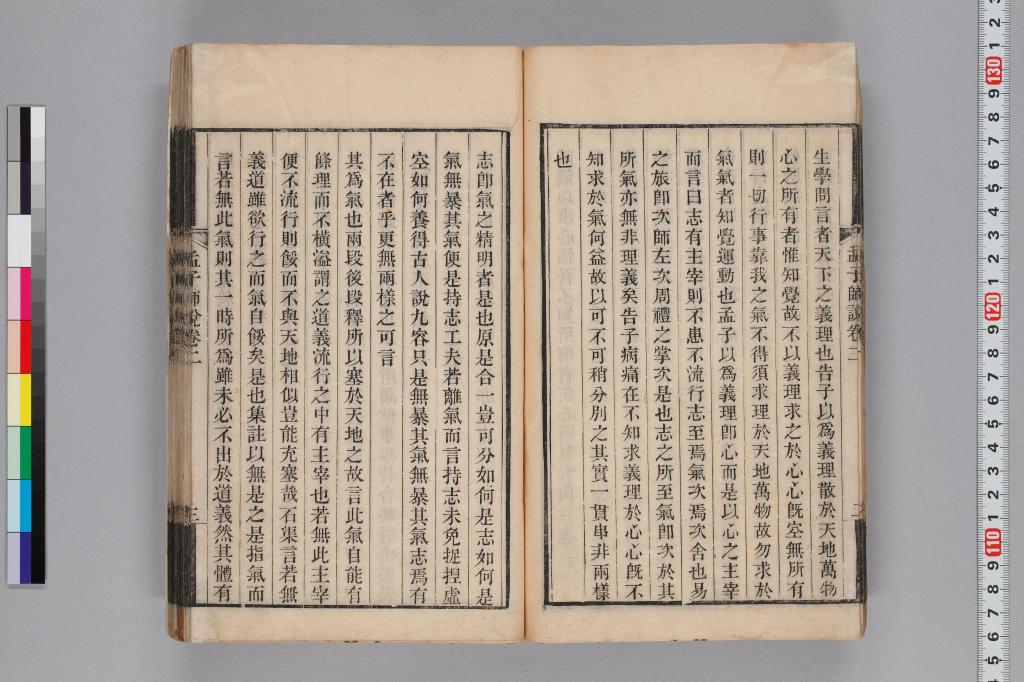 生學問言者天下之義理也告子以爲義理散於天地萬物
心之所有者惟知覺故不以義理求之於心心既空無所有
則一切行事靠我之氣不得須求理於天地萬物故勿求於
氣氣者知覺運動也孟子以爲義理卽心而是以心之主宰
而言曰志有主宰則不患不流行志至焉氣次焉次舍也易
之旅卽次師左次周禮之掌次是也志之所至氣卽次於其
所氣亦無非理義矣告子病痛在不知求義理於心心既不
知求於氣何益故以可不可稍分別之其實一貫串非兩樣
也
孟子師說卷二
志卽氣之精明者是也原是合一豈可分如何是志如何是
氣無暴其氣便是持志工夫若離氣而言持志未免捉捏虛
空如何養得古人說九容只是無暴其氣無暴其氣志焉有
不在者乎更無兩樣之可言
其爲氣也兩段後段釋所以塞於天地之故言此氣自能有
條理而不橫溢謂之道義流行之中有主宰也若無此主宰
便不流行則餒而不與天地相似豈能充塞哉石渠言若無
義道雖欲行之而氣自餒矣是也集註以無是之是指氣而
言若無此氣則其一時所爲雖未必不出於道義然其體有
孟子師說卷二
三